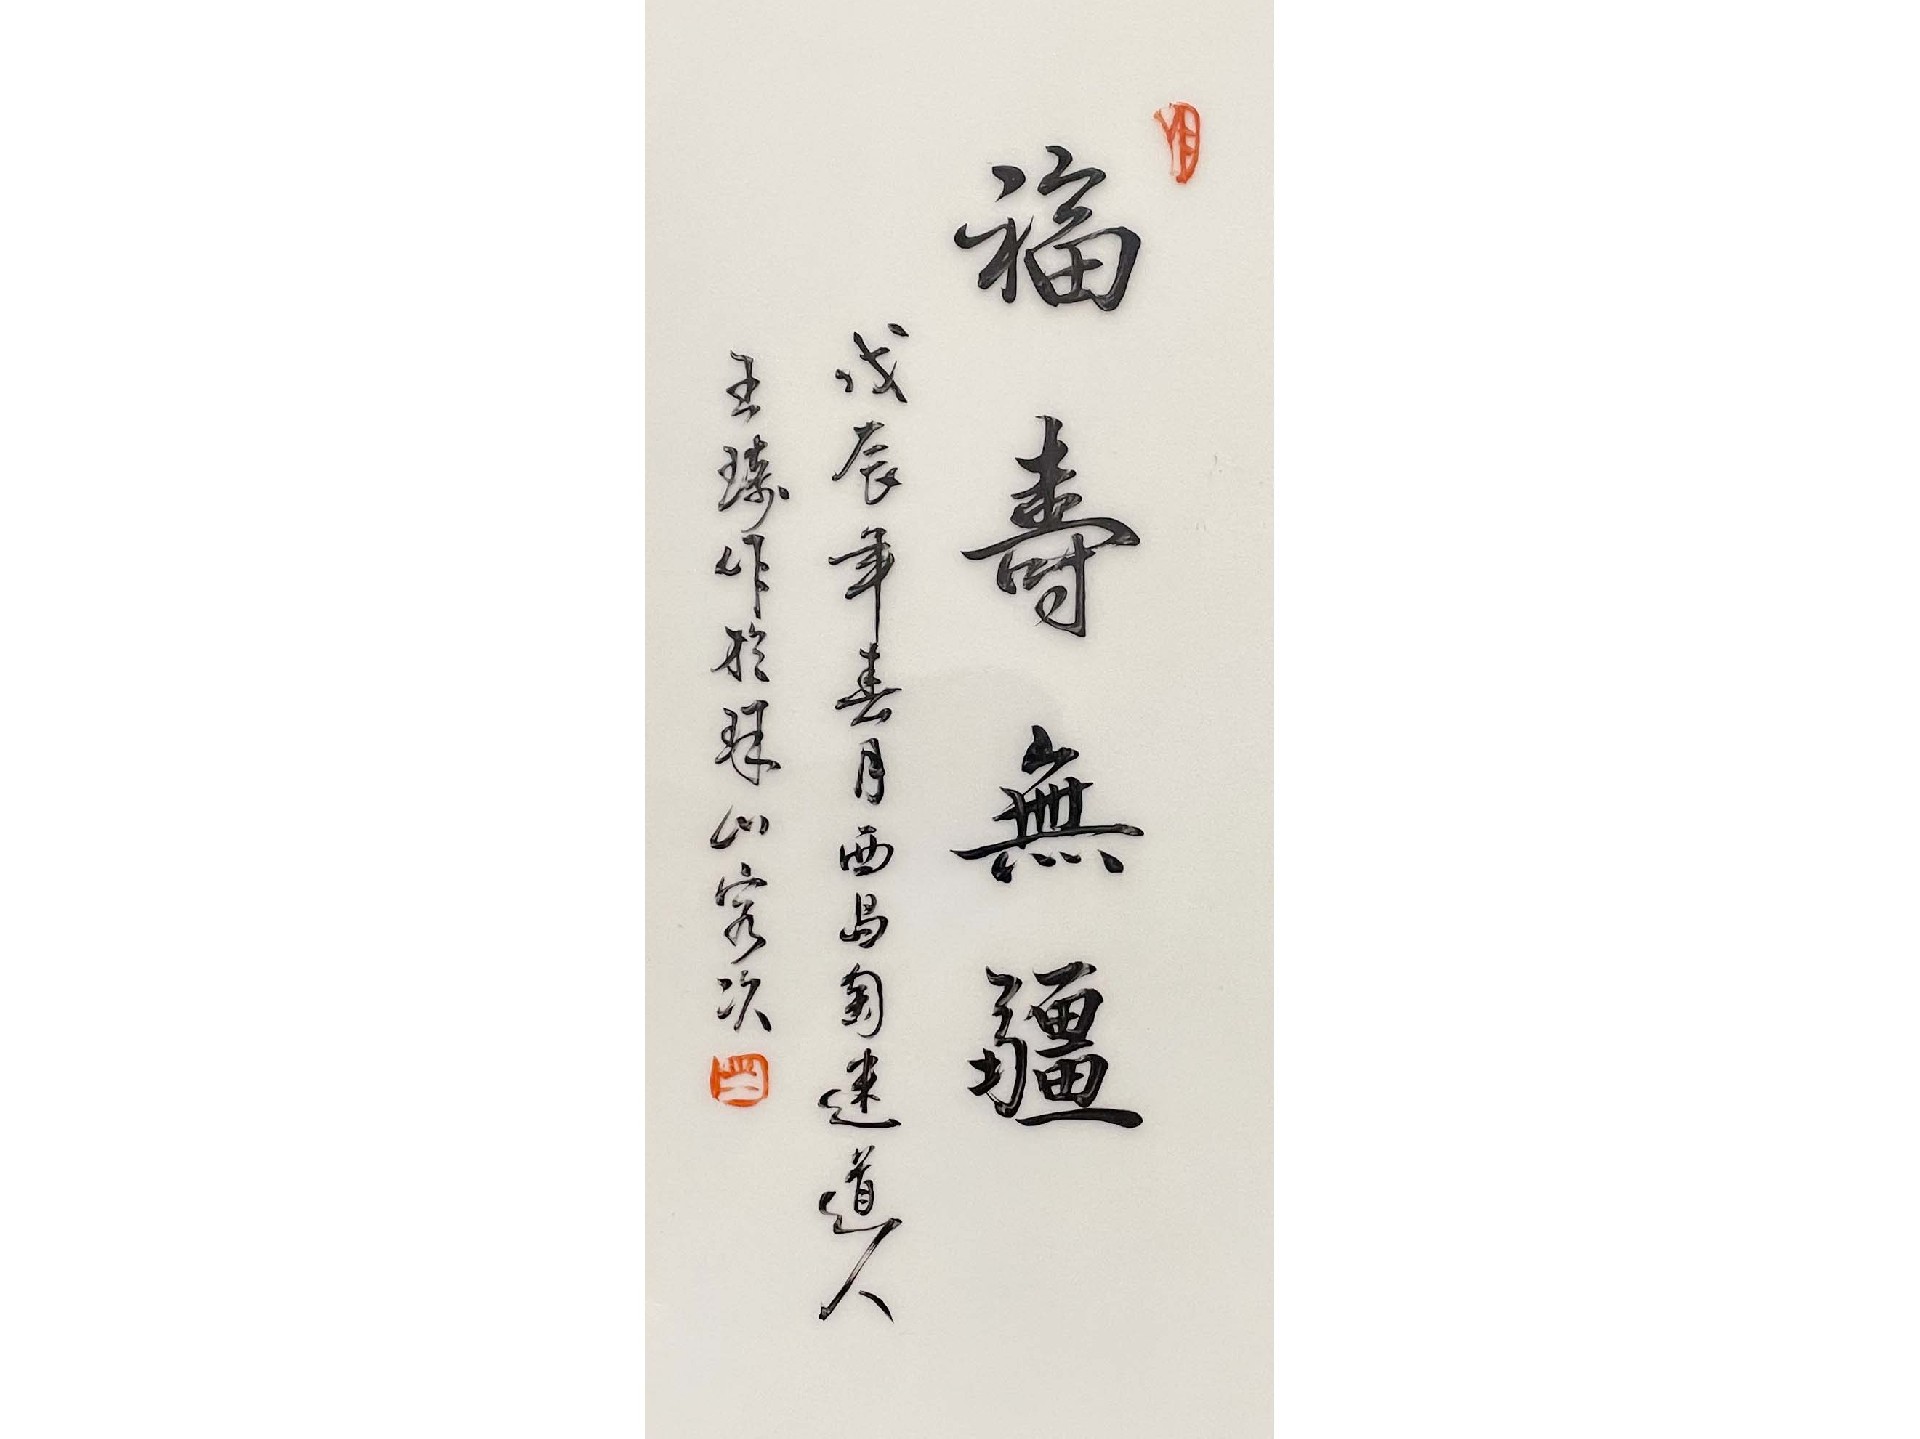 福壽無疆
戊辰年春月西昌匋迷道人
王琦作於珠山客次